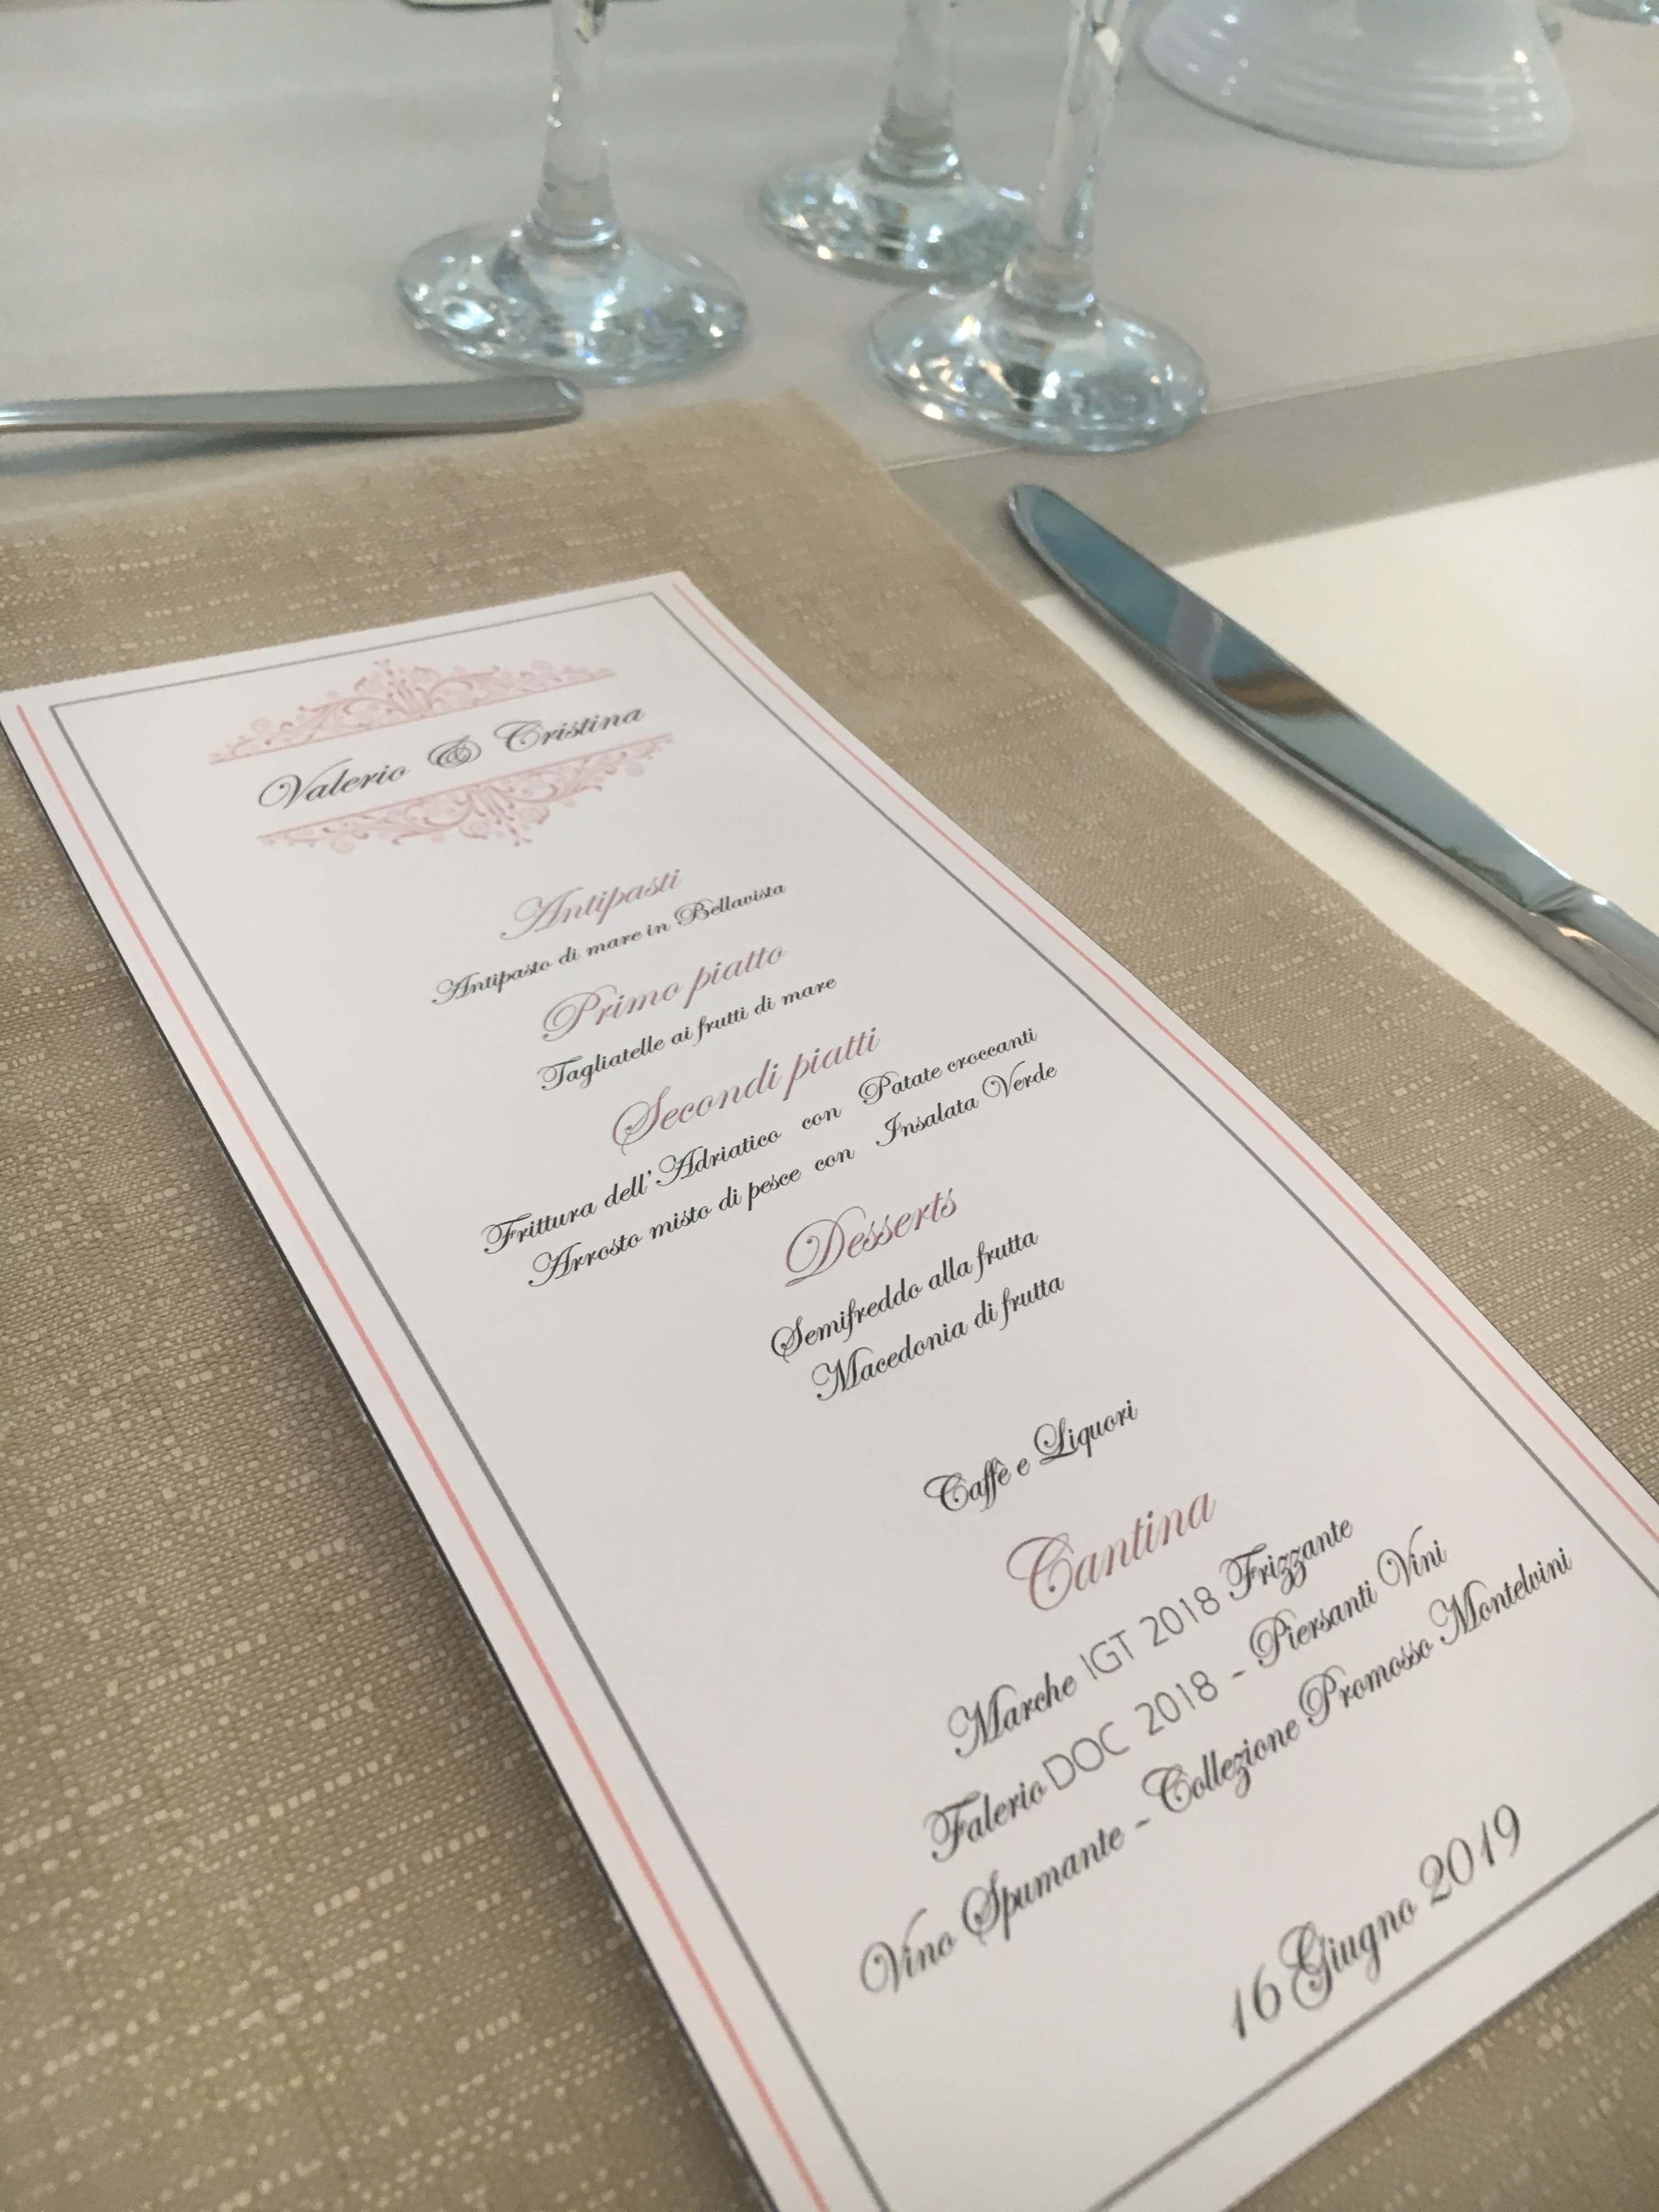 Valerio & Cristina
Antipasti
Antipasto di mare in Bellavista
Primo piatto
Tagliatelle ai frutti di mare
Secondi piatti
Frittura dell'Adriatico con Patate croccanti
Arrosto misto di pesce con Insalata Verde
Desserts
Semifreddo alla frutta
Macedonia di frutta
Caffè e Liquori
Cantina
Marche IGT 2018 Frizzante
Falerio DOC 2018 - Piersanti Vini
Vino Spumante - Collezione Promosso Montelvini
16 Giugno 2019